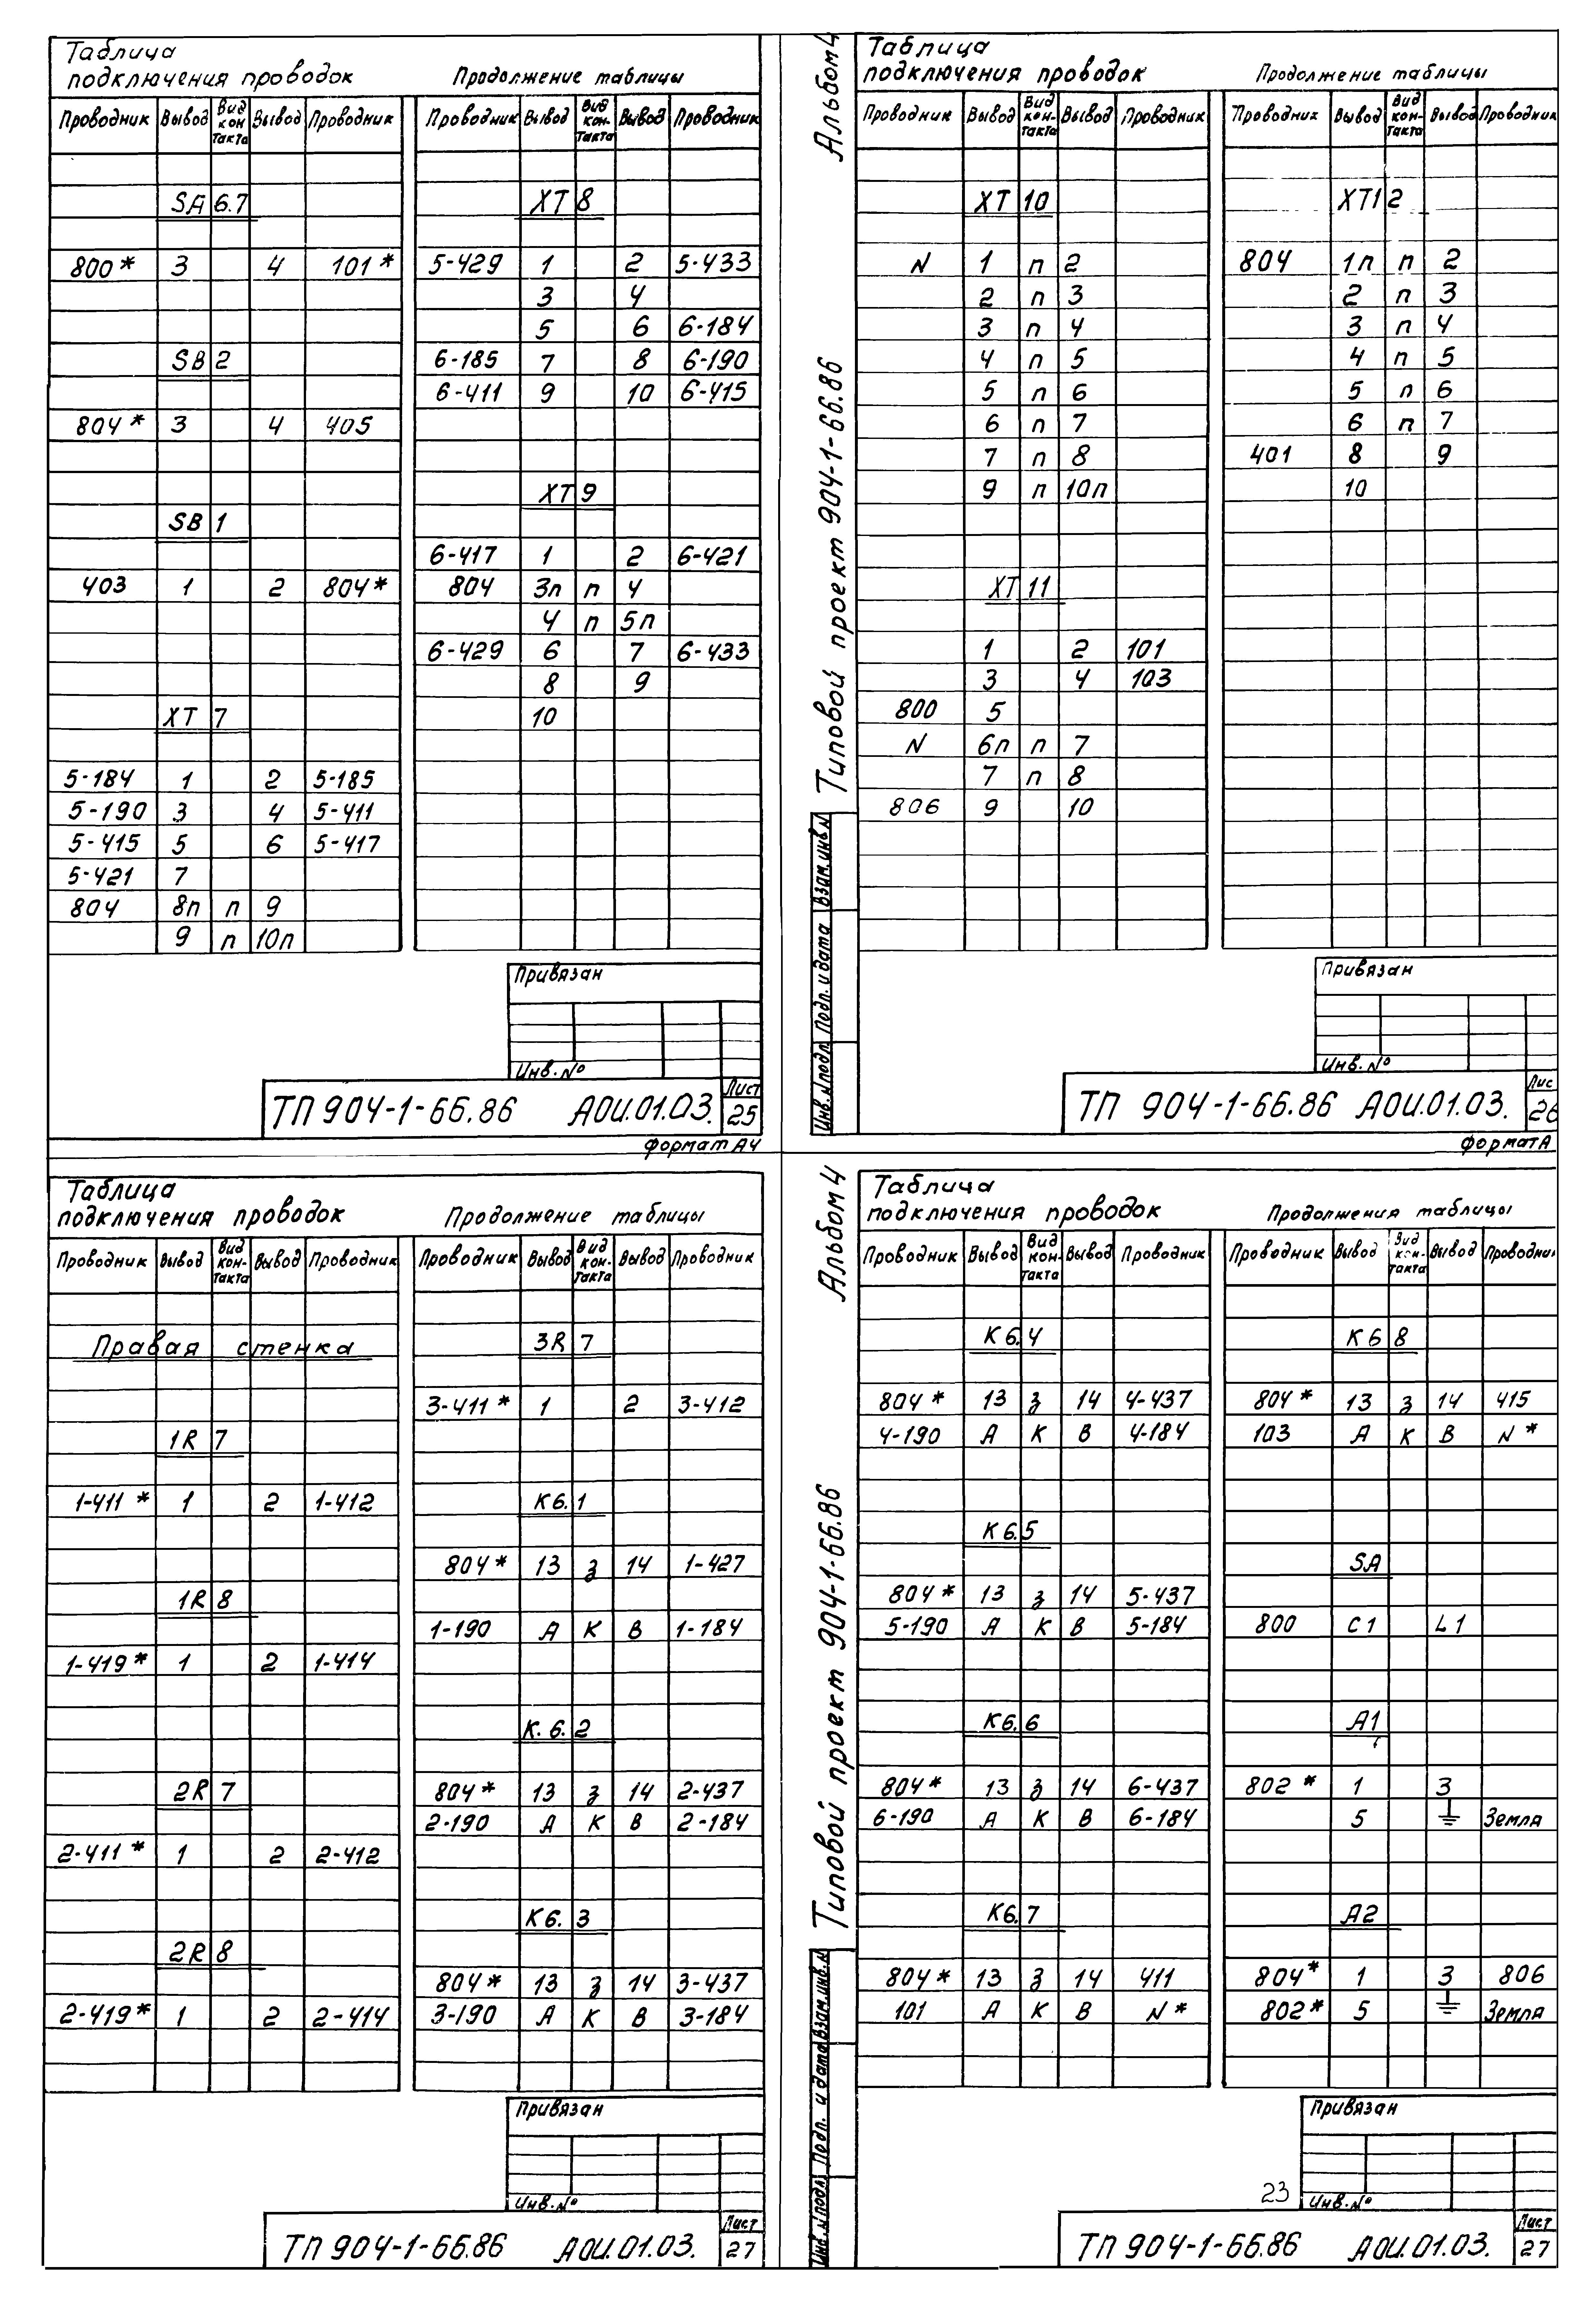 Таблица
подключения проводок Продолжение таблицы
Проводник Вывод Вид контакта Вывод Проводник Проводник Вывод Вид контакта Вывод Проводник
SA 6.7
800* 3 4 101*
SB 2
804* 3 4 405
SB 1
403 1 2 804*
XT 7
5-184 1 2 5-185
5-190 3 4 5-411
5-415 5 6 5-417
5-421 7
804 8п п 9
9 п 10п
XT 8
5-429 1 2 5-433
3 4
5 6 6-184
6-185 7 8 6-190
6-411 9 10 6-415
XT 9
6-417 1 2 6-421
804 3п п 4
4 п 5п
6-429 6 7 6-433
8 9
10
Привязан
Инв.№
ТП 904-1-66.86 АОИ.01.03. Лист 25
формат А4
Альбом 4
Типовой проект 904-1-66.86
Взам.инв.№
Подп. и дата
Инв.№подл.
Таблица
подключения проводок Продолжение таблицы
Проводник Вывод Вид контакта Вывод Проводник Проводник Вывод Вид контакта Вывод Проводник
XT 10
N 1 п 2
2 п 3
3 п 4
4 п 5
5 п 6
6 п 7
7 п 8
9 п 10п
XT 11
1 2 101
3 4 103
800 5
N 6п п 7
7 п 8
806 9 10
XT1 2
804 1п п 2
2 п 3
3 п 4
4 п 5
5 п 6
6 п 7
401 8 9
10
Привязан
Инв.№
ТП 904-1-66.86 АОИ.01.03. Лис 26
формат А
Таблица
подключения проводок Продолжение таблицы
Проводник Вывод Вид контакта Вывод Проводник Проводник Вывод Вид контакта Вывод Проводник
Правая стенка
1R 7
1-411* 1 2 1-412
1R 8
1-419* 1 2 1-414
2R 7
2-411* 1 2 2-412
2R 8
2-419* 1 2 2-414
3R 7
3-411* 1 2 3-412
К6.1
804* 13 з 14 1-427
1-190 А К В 1-184
К.6.2
804* 13 з 14 2-437
2-190 А К В 2-184
К6.3
804* 13 з 14 3-437
3-190 А К В 3-184
Привязан
Инв.№
ТП 904-1-66.86 АОИ.01.03. Лист 27
Альбом 4
Типовой проект 904-1-66.86
Взам.инв.№
Подп. и дата
Инв.№подл.
Таблица
подключения проводок Продолжения таблицы
Проводник Вывод Вид контакта Вывод Проводник Проводник Вывод Вид контакта Вывод Проводник
К6.4
804* 13 з 14 4-437
4-190 А К В 4-184
К6.5
804* 13 з 14 5-437
5-190 А К В 5-184
К6.6
804* 13 з 14 6-437
6-190 А К В 6-184
К6.7
804* 13 з 14 411
101 А К В N*
К6 8
804* 13 з 14 415
103 А К В N*
SA
800 С1 L1
А1
802* 1 3
5 ⏚ Земля
А2
804* 1 3 806
802* 5 ⏚ Земля
Привязан
23
Инв.№
ТП 904-1-66.86 АОИ.01.03. Лист 27